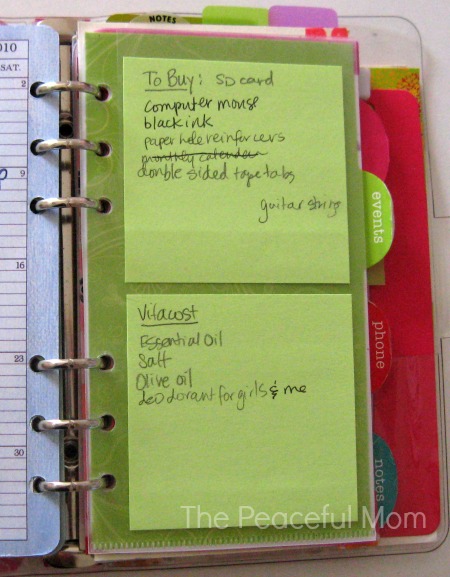 2010
SAT.
2
9
16
23
30
NOTES
To Buy: SD card
computer mouse
black ink
paper hole reinforcers
monthly calendar
double sided tape tabs
guitar strings
Vitacost
Essential Oil
Salt
Olive oil
deodorant for girls & me
events
phone
notes
The Peaceful Mom